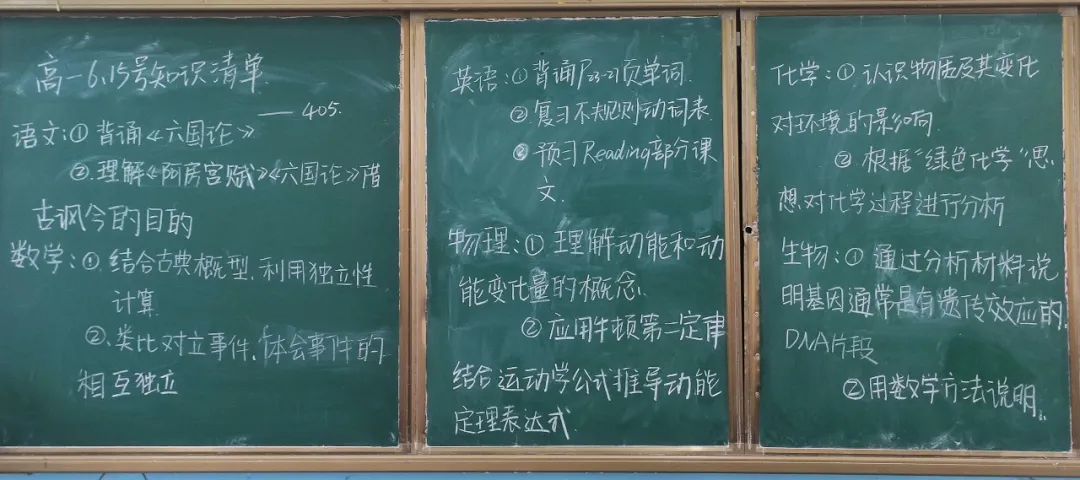 高一6.15号知识清单
—— 405.
语文:①背诵《六国论》
②.理解《阿房宫赋》《六国论》借
古讽今的目的
数学:①.结合古典概型、利用独立性
计算.
②.类比对立事件、体会事件的
相互独立
英语:①背诵P23-27页单词.
②复习不规则动词表.
③预习Reading部分课
文.
物理:①.理解动能和动
能变化量的概念.
②应用牛顿第二定律
结合运动学公式推导动能
定理表达式.
化学:①认识物质及其变化
对环境的影响.
②根据“绿色化学”思
想对化学过程进行分析
生物:①通过分析材料说
明基因通常是有遗传效应的
DNA片段
②用数学方法说明..